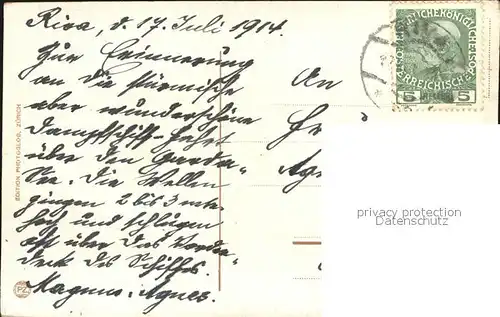 Riva, d. 17. Juli 1914.
Zur Erinnerung
an die stürmische
aber wunderschöne
Dampfschiff-Fahrt
über den Garda-
See. Die Wellen
gingen 2 bis 3 mtr.
hoch und schlugen
oft über das Vorder-
deck des Schiffes.
Magnus. Agnes.
An
Agn
EDITION PHOTOGLOB, ZÜRICH
PZ
5 5
privacy protection
Datenschutz